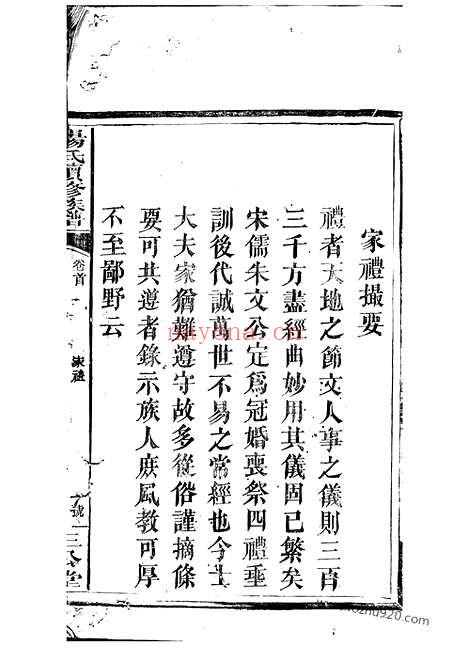 家禮撮要
禮者天地之節文人事之儀則三百
三千方盡經曲妙用其儀固已繁矣
宋儒朱文公定爲冠婚喪祭四禮垂
訓後代誠萬世不易之常經也今士
大夫家猶難遵守故多從俗謹摘條
要可共遵者錄示族人庶風教可厚
不至鄙野云
楊氏續修族譜
卷首
家禮
號
三公堂
nayona.cn
zhou7920.com